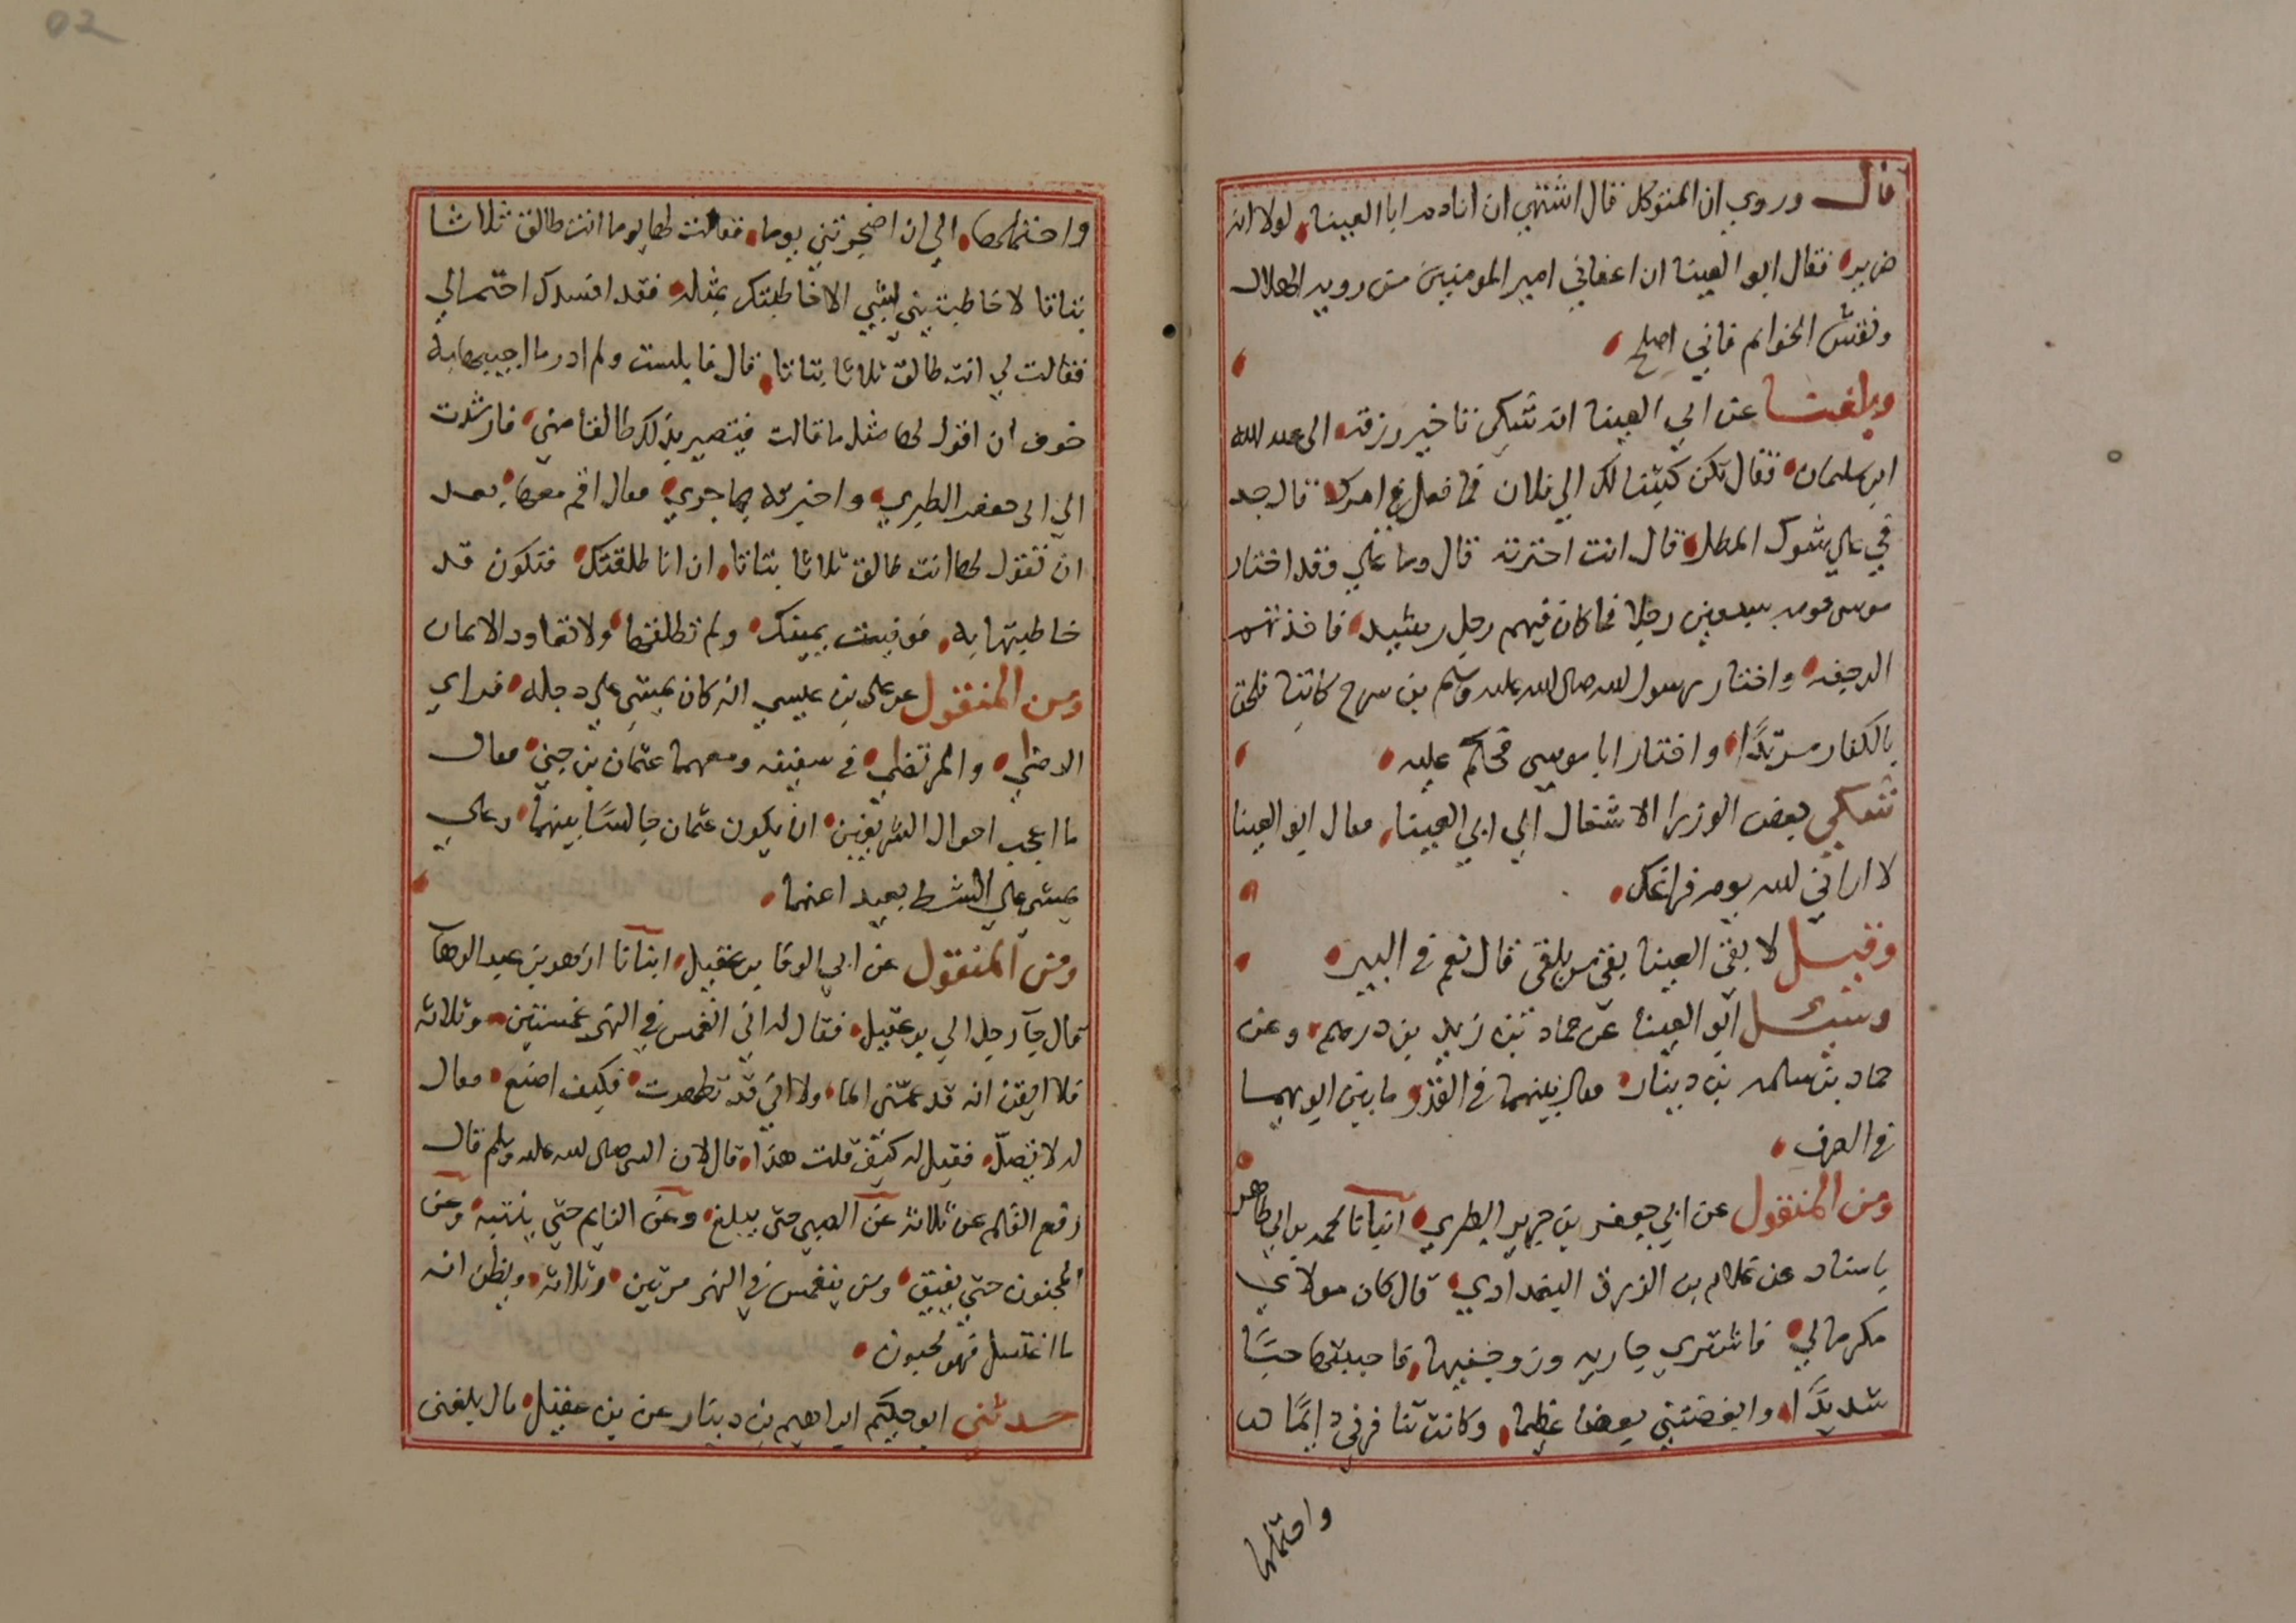 قال وروي ان المتوكل قال اشتهي ان انادم ابا العينا لولا انه
ضرير فقال ابو العينا ان اعفاني امير المومنين من روية الهلال
ونقش الخواتم فاني اصلح
وبلغنا عن ابي العينا انه شكي تاخير رزقه الى عبد الله
ابن سلمان فقال نكن كتبنا لك الي فلان فما فعل في امرك قال جد
في علي شوك المطل قال انت اخترته قال وما علي وقد اختار
موسى قومه سبعين رجلا فما كان فيهم رجل رشيد فاخذتهم
الرجفه واختار رسول الله صلى الله عليه وسلم بن سرح كاتبا فلحق
بالكفار مرتدًا واختار ابا موسي فحكم عليه
شكي بعض الوزرا الاشغال الي ابي العينا فقال ابو العينا
لا اراني الله يوم فراغك
وقيل لا بقي العينا بقي من يلقى قال نعم في البير
وسئل ابو العينا عن حماد بن زيد بن درهم وعن
حماد بن سلمه بن دينار فقال بينهما في القدر ما بين ابويهما
في الصرف
ومن المنقول عن ابي جعفر بن جرير الطبري انبانا محمد بن ابي طاهر
باسناد عن غلام بن الزرق البغدادي قال كان مولاي
مكرما لي فاشترى جاريه وزوجنيها فاحببتها حبًا
شديدًا وابغضتني بغضا عظيما وكانت تنافرني دايمًا
واحتملها
واحتملها الي ان اضجرتني يوما فقالت لها يوما انت طالق ثلاثا
بتاتا لا خاطبتيني بشي الا خاطبتك بمثله فقد افسدك احتمالي
فقالت لي انت طالق ثلاثا بتاتا قال فابلست ولم ادر ما اجيبها به
خوف ان اقول لها مثل ما قالت فتصير بذلك طالقا مني فارشدت
الي ابى جعفر الطبري واخبرته بما جري فقال اقم معها بعد
ان تقول لها انت طالق ثلاثا بتاتا ان انا طلقتك فتكون قد
خاطبتها به فوفيت بيمينك ولم تطلقها ولا تعاود الايمان
ومن المنقول عن علي بن عيسي انه كان يمشي علي دجله فراي
الرضي والمرتضي في سفينه ومعهما عثمان بن جني فقال
ما اعجب احوال الشريفين ان يكون عثمان جالسًا بينهما وعلي
يمشي علي الشط بعيد اعنهما
ومن المنقول عن ابي الوفا بن عقيل انبانا ازهر بن عبد الوهاب
قال جآ رجل الي بن عقيل فقال له اني انغمس في النهر غمستين وثلاثه
فلا اتيقن انه قد عمني الما ولا اني قد تطهرت فكيف اصنع فقال
له لا تصلّ فقيل له كيف قلت هذا قال لان النبى صلى الله عليه وسلم قال
رفع القلم عن ثلاثه عن الصبي حتى يبلغ وعن النايم حتي ينتبه وعن
المجنون حتي يفيق ومن ينغمس في النهر مرتين وثلاثه ويظن انه
ما اغتسل فهو مجنون
حدثني ابو حكيم ابراهيم بن دينار عن بن عقيل قال بلغني